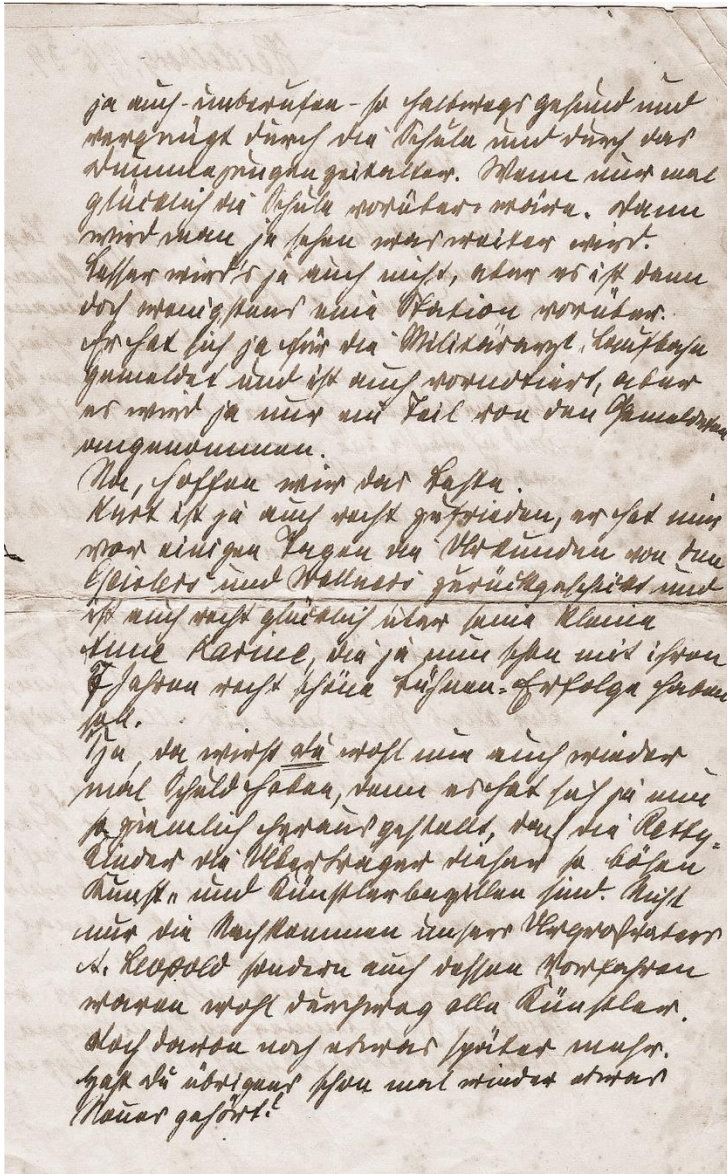 ja auch - unberufen - so halbwegs gesund und
vergnügt durch die Schule und durch das
Dummejungenzeitalter. Wenn nur mal
glücklich die Schule vorüber wäre. Dann
wird man ja sehen was weiter wird.
Besser wird's ja auch nicht, aber es ist dann
doch wenigstens eine Station vorüber.
Er hat sich ja für die Militärarzt-Laufbahn
gemeldet und ist auch vornotiert, aber
es wird ja nur ein Teil von den Gemeldeten
angenommen.
Na, hoffen wir das Beste.
Kurt ist ja auch recht zufrieden, er hat mir
vor einigen Tagen die Urkunden von den
und Wallners zurückgeschickt und
ist auch recht glücklich über seine kleine
Anne Karine, die ja nun schon mit ihren
7 Jahren recht schöne Bühnen-Erfolge haben
soll.
Tja, da wirst du wohl nun auch wieder
mal Schuld haben, denn es hat sich ja nun
so ziemlich herausgestellt, daß die Retty-
Kinder die Überträger dieser so bösen
Kunst- und Künstlerbazillen sind. Nicht
nur die Nachkommen unsers Urgroßvaters
A. Leopold sondern auch dessen Vorfahren
waren wohl durchweg alle Künstler.
Doch davon noch etwas später mehr.
Hast du übrigens schon mal wieder etwas
Neues gehört?